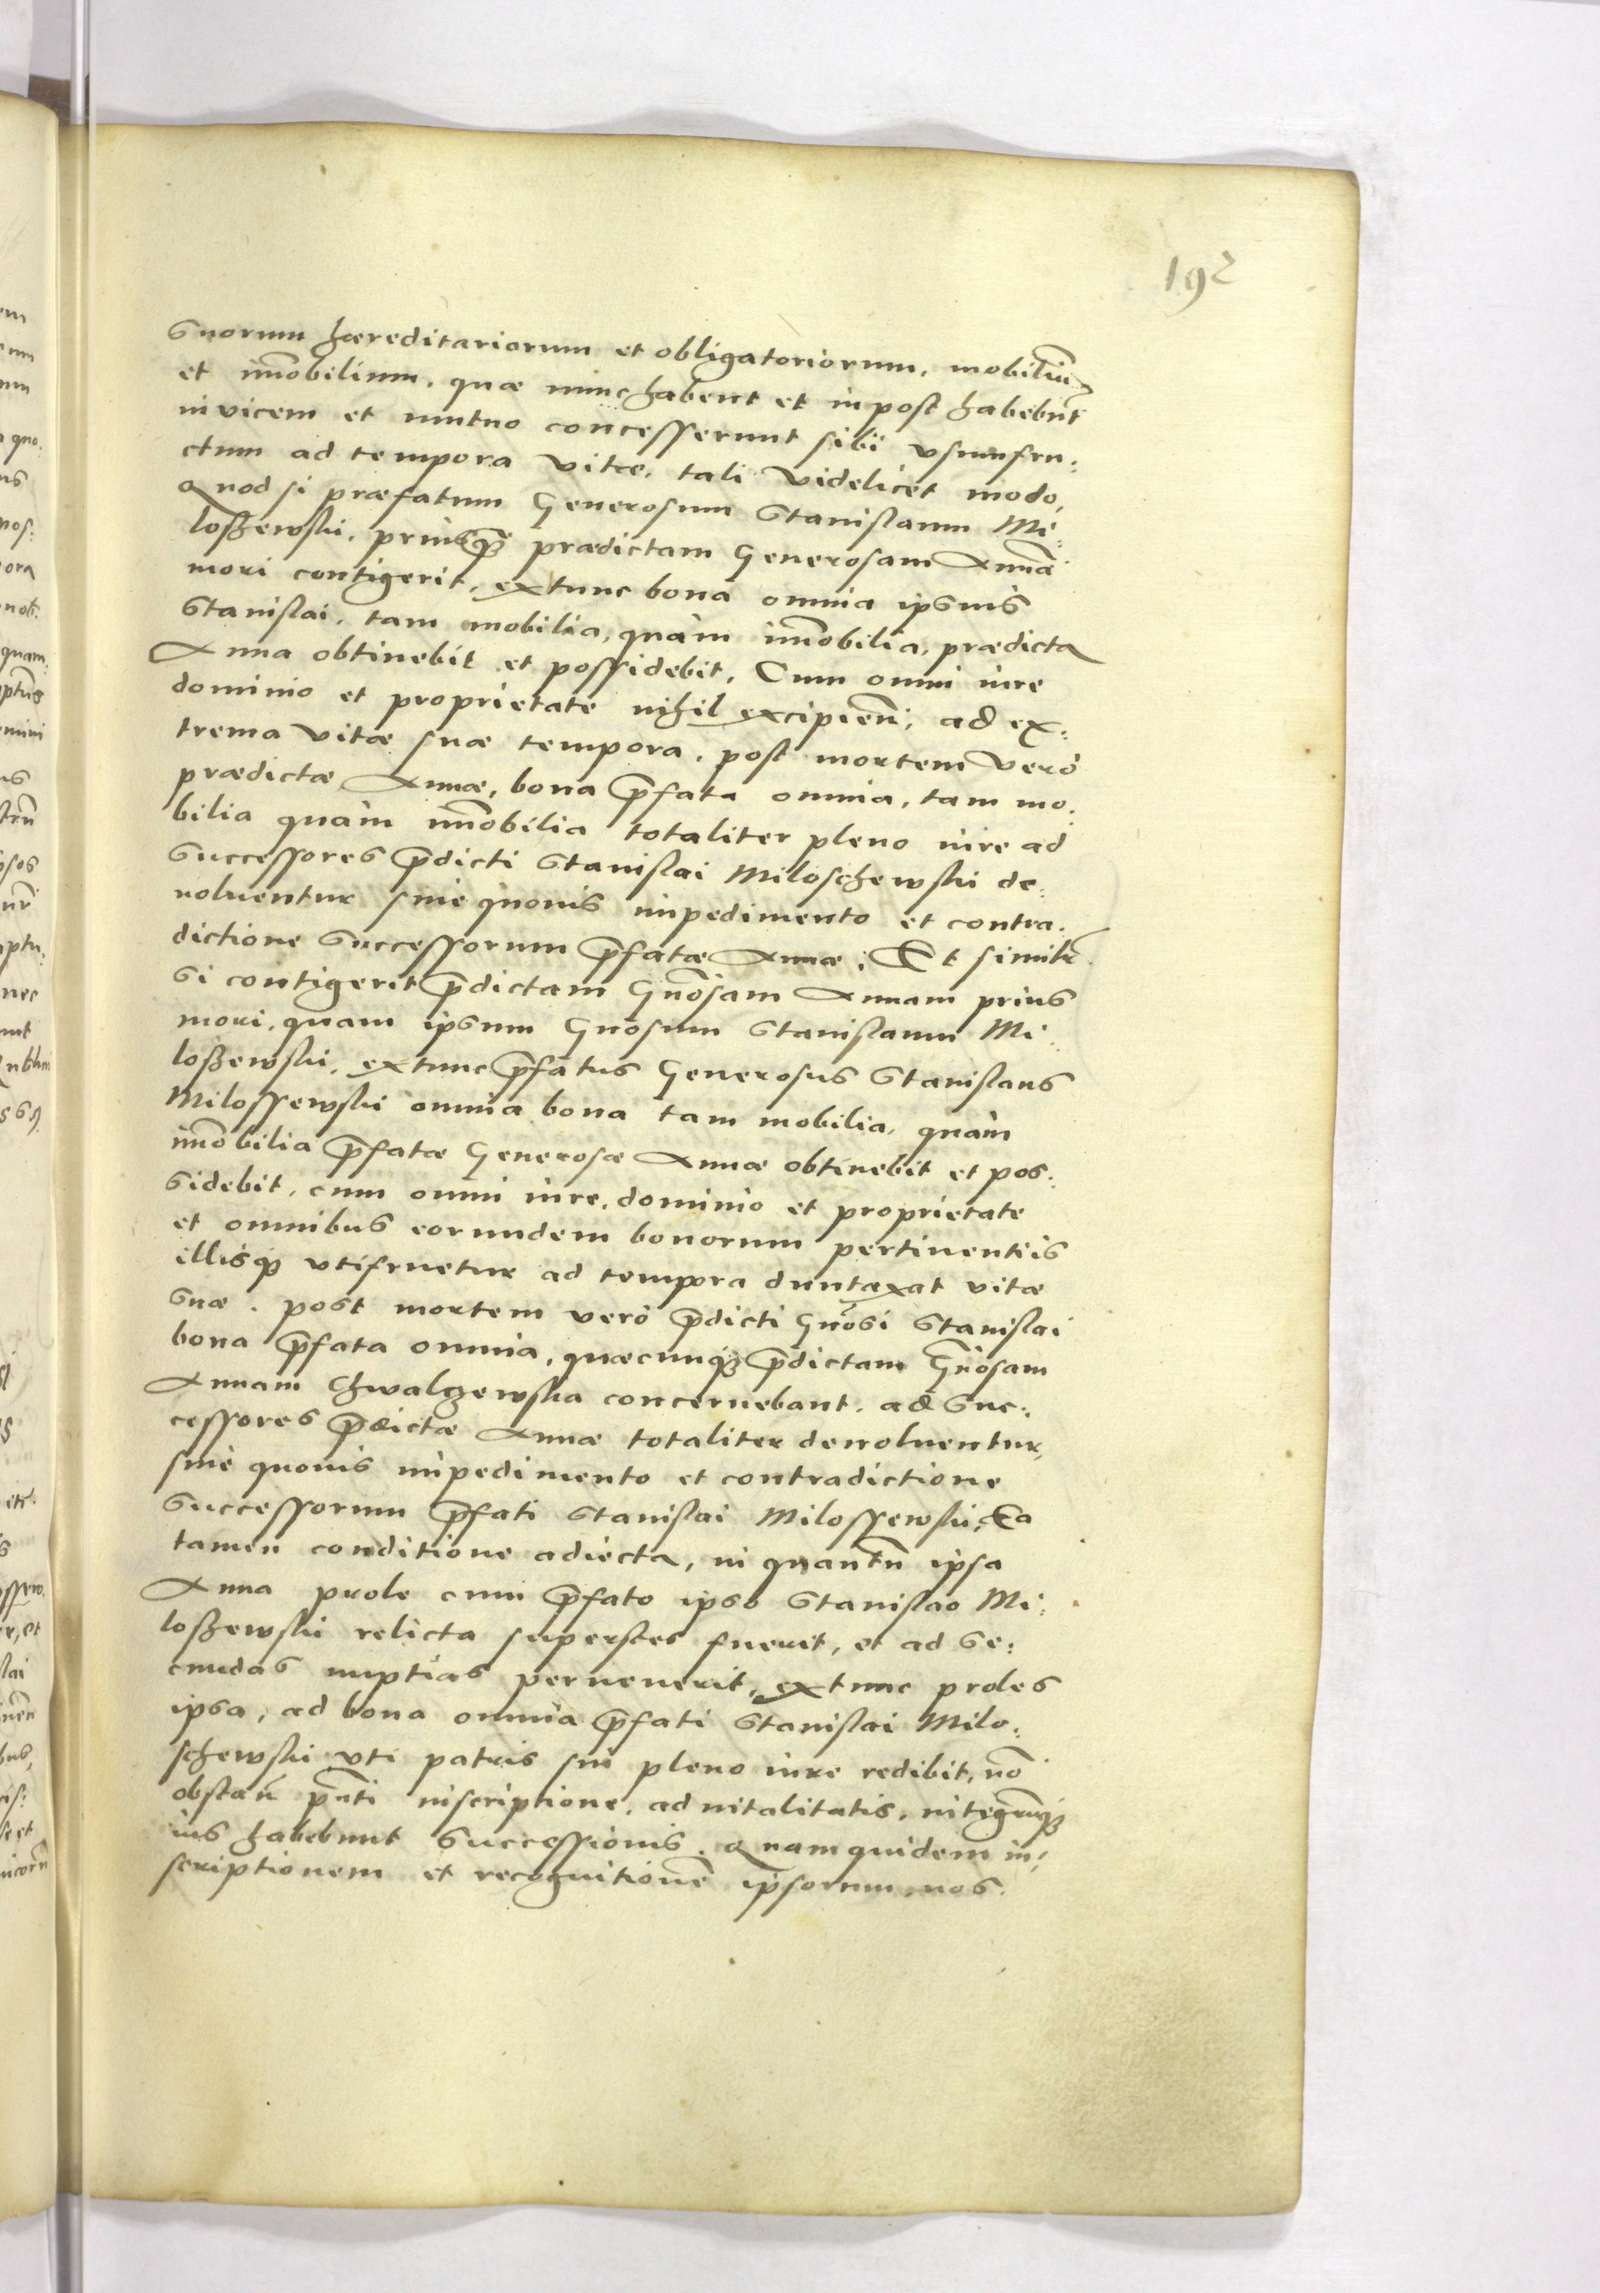 192
suorum haereditariorum et obligatoriorum, mobiliũ
et im̃obilium, quae nunc habent et in post habebũt
invicem et mutuo concesserunt sibi vsumfru:
ctum ad tempora vitae, tali videlicet modo,
Quod si praefatum Generosum Stanislaum Mi:
loßewski, priusq̃ praedictam Generosam Annã
mori contigerit, extunc bona omnia ipsius
Stanislai, tam mobilia, quàm im̃obilia, praedicta
Anna obtinebit et possidebit, Cum omni iure
dominio et proprietate nihil excipien̄, ad ex:
trema vitae suae tempora, post mortem verò
praedictae Annae, bona p̃fata omnia, tam mo:
bilia quàm im̃obilia totaliter pleno iure ad
successores p̃dicti Stanislai Miloschewski de:
uoluentur sine quouis impedimento et contra:
dictione successorum p̃fatae Annae; Et similr̃
si contigerit p̃dictam Gñosam Annam prius
mori, quam ipsum Gñosum Stanislaum Mi:
loßewski, extunc p̃fatus Generosus Stanislaus
Milossewski omnia bona tam mobilia, quàm
im̃obilia p̃fatae Generosae Annae obtinebit et pos:
sidebit, cum omni iure, dominio et proprietate
et omnibus eorundem bonorum pertinentiis
illisq̃ vtifruetur ad tempora duntaxat vitae
suae. post mortem verò p̃dicti Gñosi Stanislai
bona p̃fata omnia, quaecunq̃ p̃dictam Gñosam
Annam Chwalczewska concernebant, ad suc:
cessores p̃dictae Annae totaliter deuoluentur,
sine quouis impedimento et contradictione
successorum p̃fati Stanislai Milossewski, Ea
tamen conditione adiecta, in quantũ ipsa
Anna prole cum p̃fato ipso Stanislao Mi:
loßewski relicta superstes fuerit, et ad se:
cundas nuptias peruenerit, extunc proles
ipsa, ad bona omnia p̃fati Stanislai Milo:
schewski vti patris sui pleno iure redibit, nõ
obstan̄ p̃nti inscriptione, aduitalitatis, integrumq̃
ius habebunt successionis. Quam quidem in:
scriptionem et recognitionẽ ipsorum, nos.